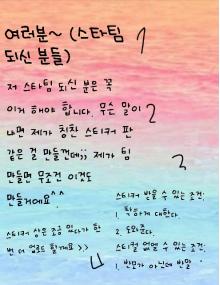 여러분~ (스타팀
되신 분들)
1
저 스타팀 되신 분은 꼭
이거 해야 합니다. 무슨 말이
2
냐면 제가 칭찬 스티커 판
같은 걸 만들건데;; 제가 팀
3
만들면 무조건 이것도
만들거에요^^
스티커 상은 조금 있다가 한
번 더 업로드 할게요 >>
4
스티커 받을 수 있는 조건.
1. 착하게 대한다
2. 도와준다.
스티커 없앨 수 있는 조건.
1. 반모가 아닌데 반말